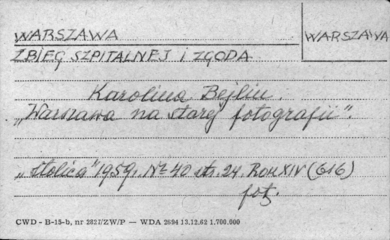 WARSZAWA
WARSZAWA
ZBIEG SZPITALNEJ I ZGODA
Karolina Bejlin.
„Warszawa na starej fotografii".
„Stolica" 1959r. Nr 40 str. 24. Rok XIV (616)
fot.
CWD - B-15-b, nr 2822/ZW/P — WDA 2694 13.12.62 1.700.000